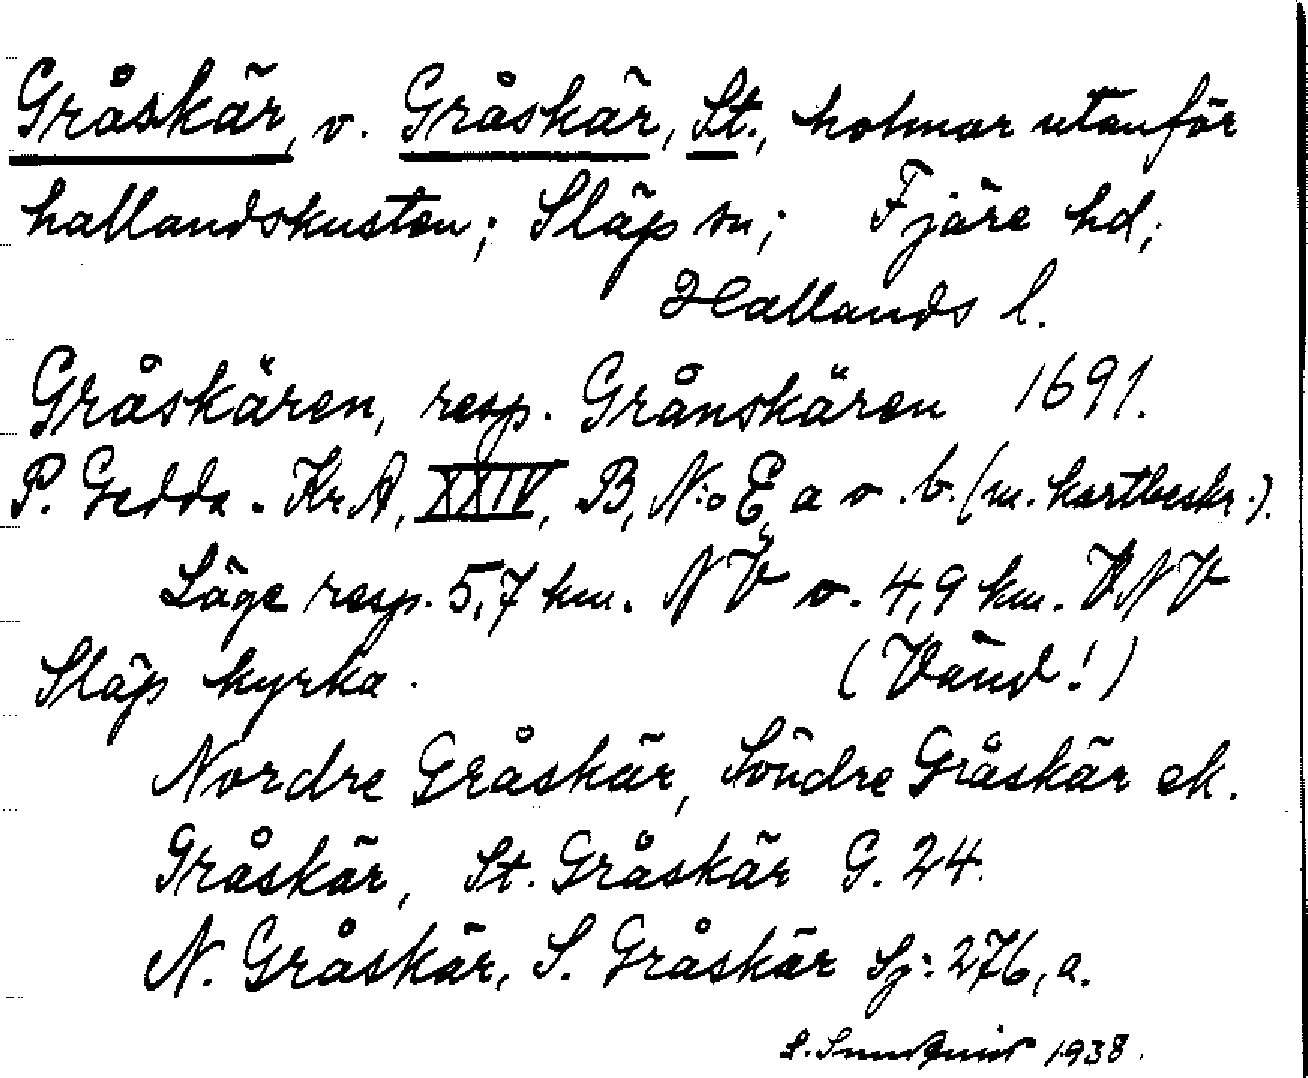 Gråskär, o. Gråskär, St., holmar utanför
hallandskusten; Släp sn; Fjäre hd;
Hallands l.
Gråskären, resp. Grånskären 1691.
P. Gedda. Kr.A, XXIV, B, N:o E, a o. b. (m. kartbeskr.).
Läge resp. 5,7 km. NV o. 4,9 km. VNV
Släp kyrka. (Vänd!)
Nordre Gråskär, Söndre Gråskär ek.
Gråskär, St. Gråskär G. 24.
N. Gråskär, S. Gråskär Sj: 276, a.
1938.